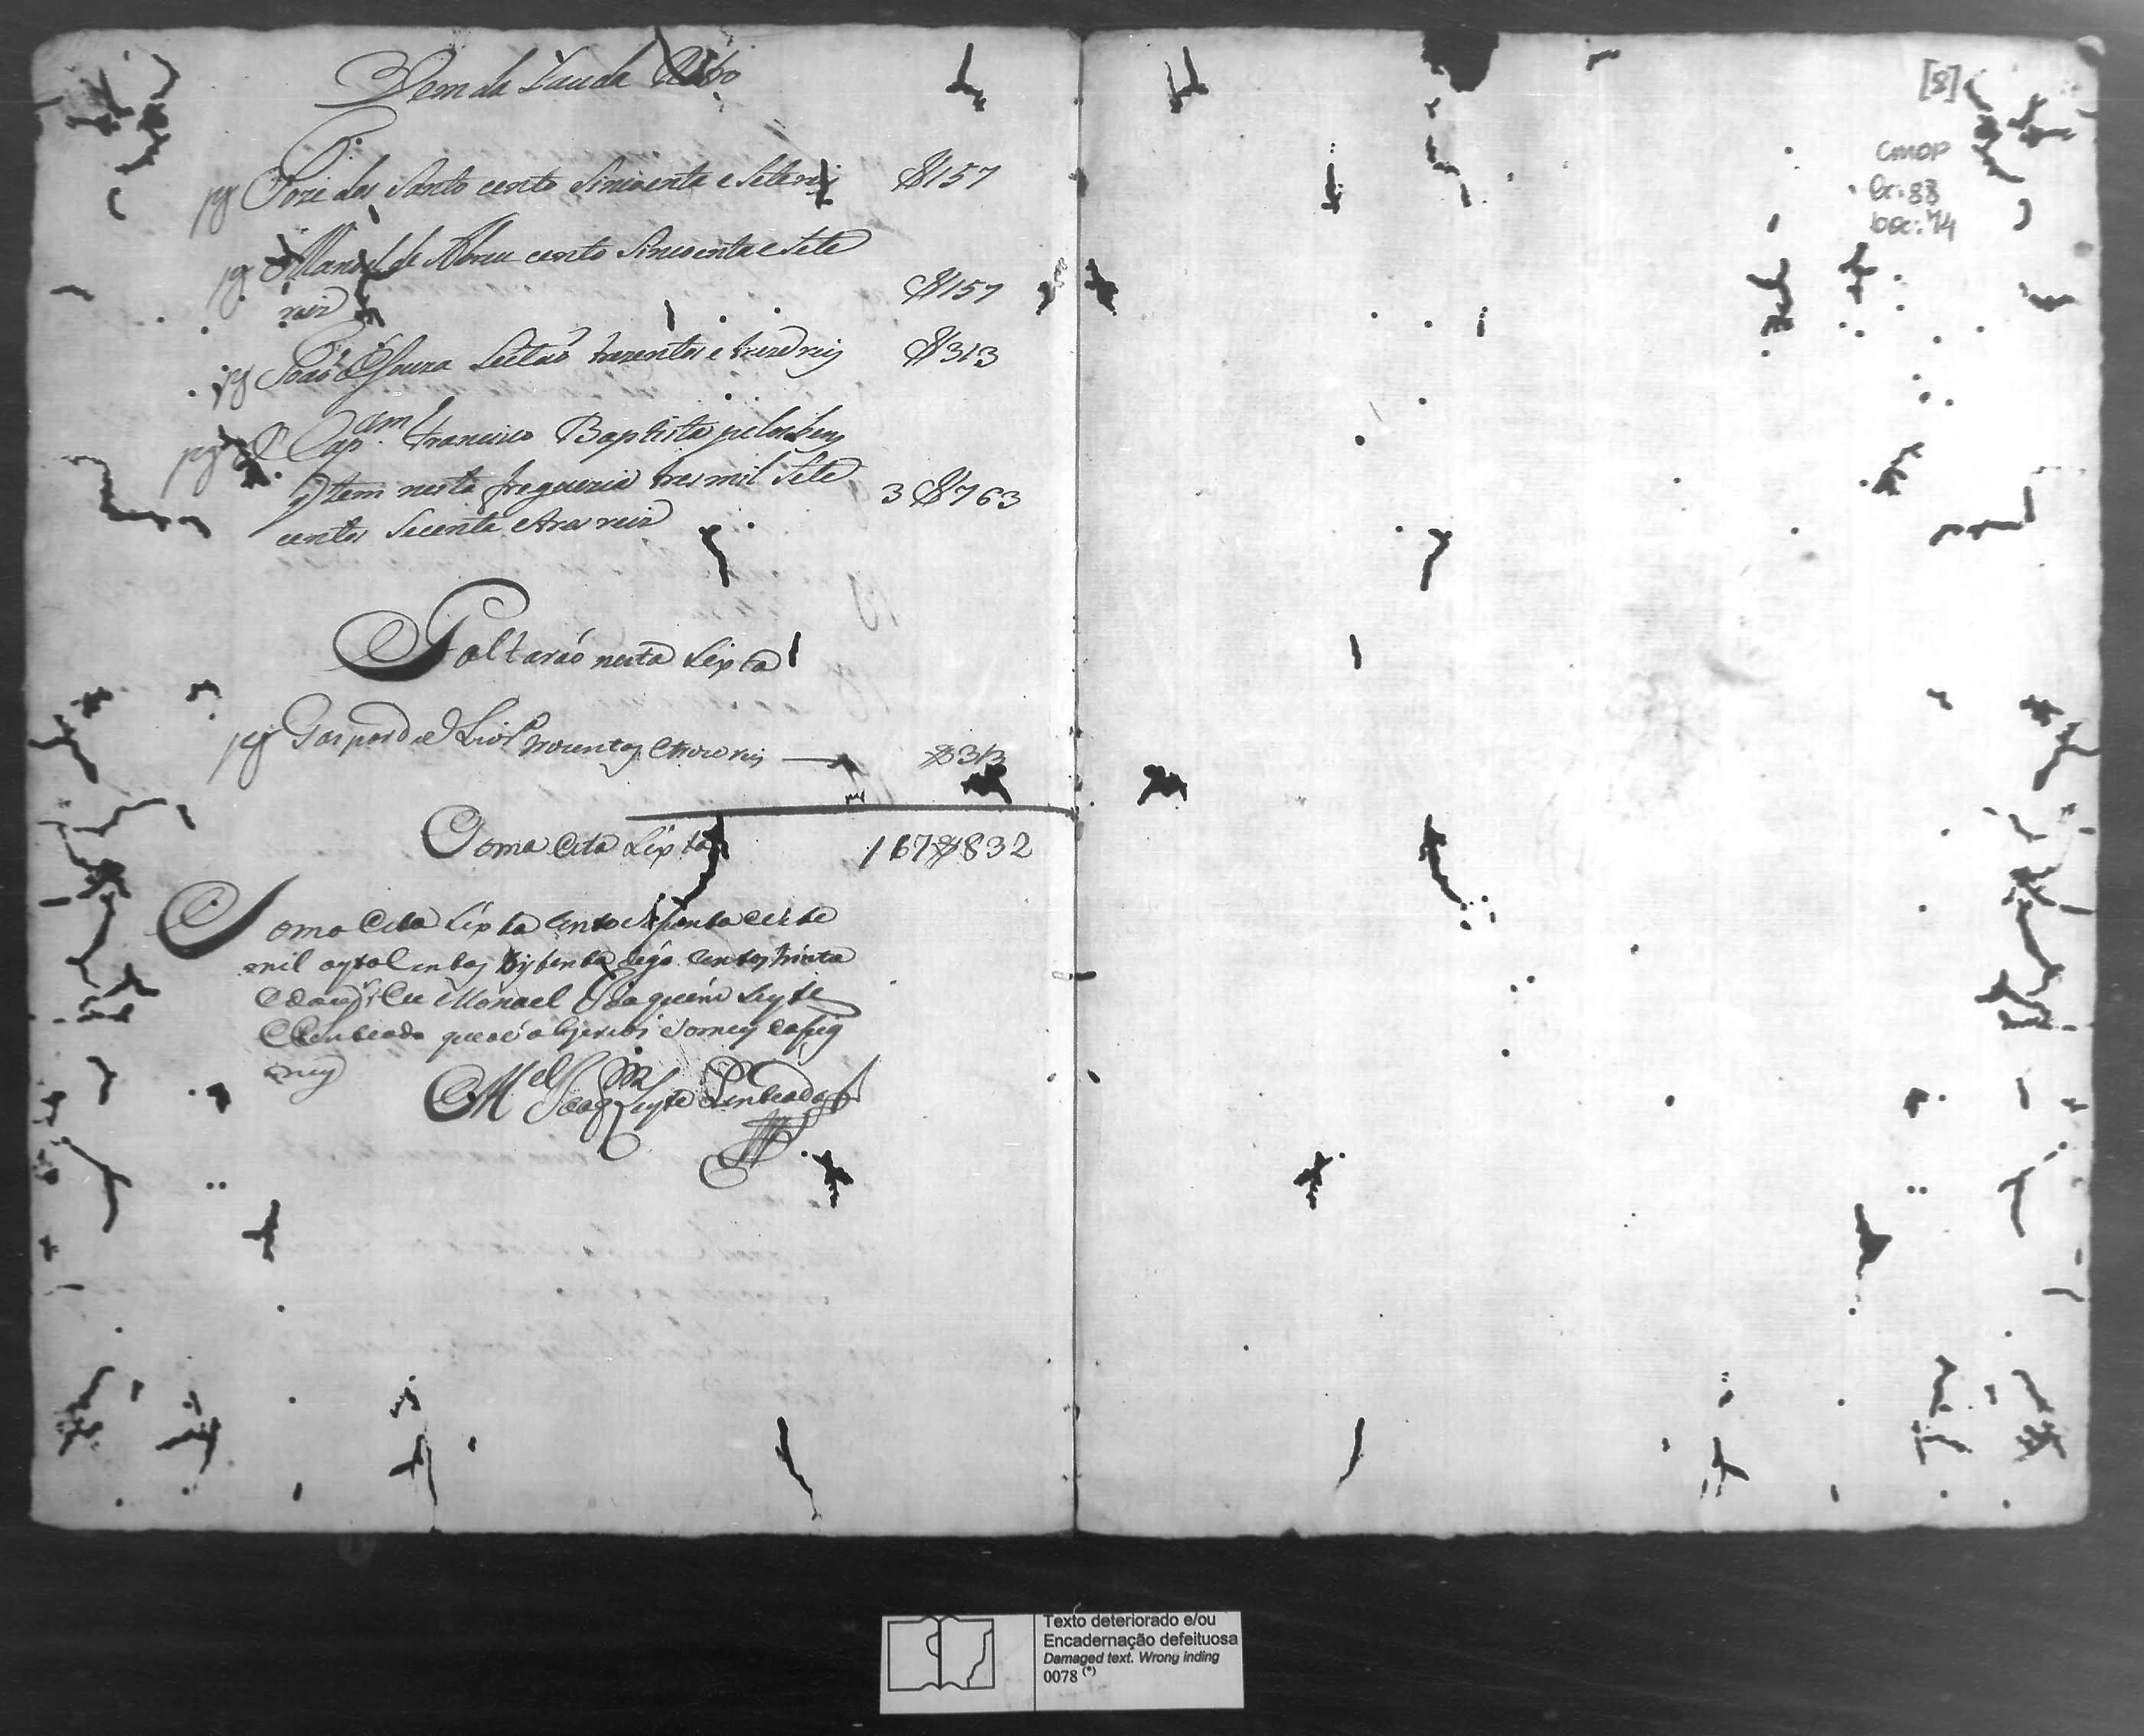 Vem da Lauda
pg Joze dos Santo cento Sincoenta e Sete reis $157
pg Manoel de Abreu cento Sincoenta e Sete
reis $157
pg João de Souza Leitaõ trezentos e treze reis $313
pg O Cap.am Francisco Baptista pelos bens
q tem nesta freguezia tres mil Sete 3$763
centos Secenta e tres reis
Faltaráo nesta Lixta
pg Gaspar de trezentos e treze reis $313
Soma esta Lixta 167$832
Soma esta Lixta cento e secenta e sete
mil oytosentos digo centos trinta
e dous Eu Manoel Joaquim Leyte
Penteado que o escrevi somey e asig
ney
M.el Joaq.m Leyte Penteado
[8]
CMOP
Cx: 88
Doc: 74
Texto deteriorado e/ou
Encadernação defeituosa
Damaged text. Wrong inding
0078 (*)